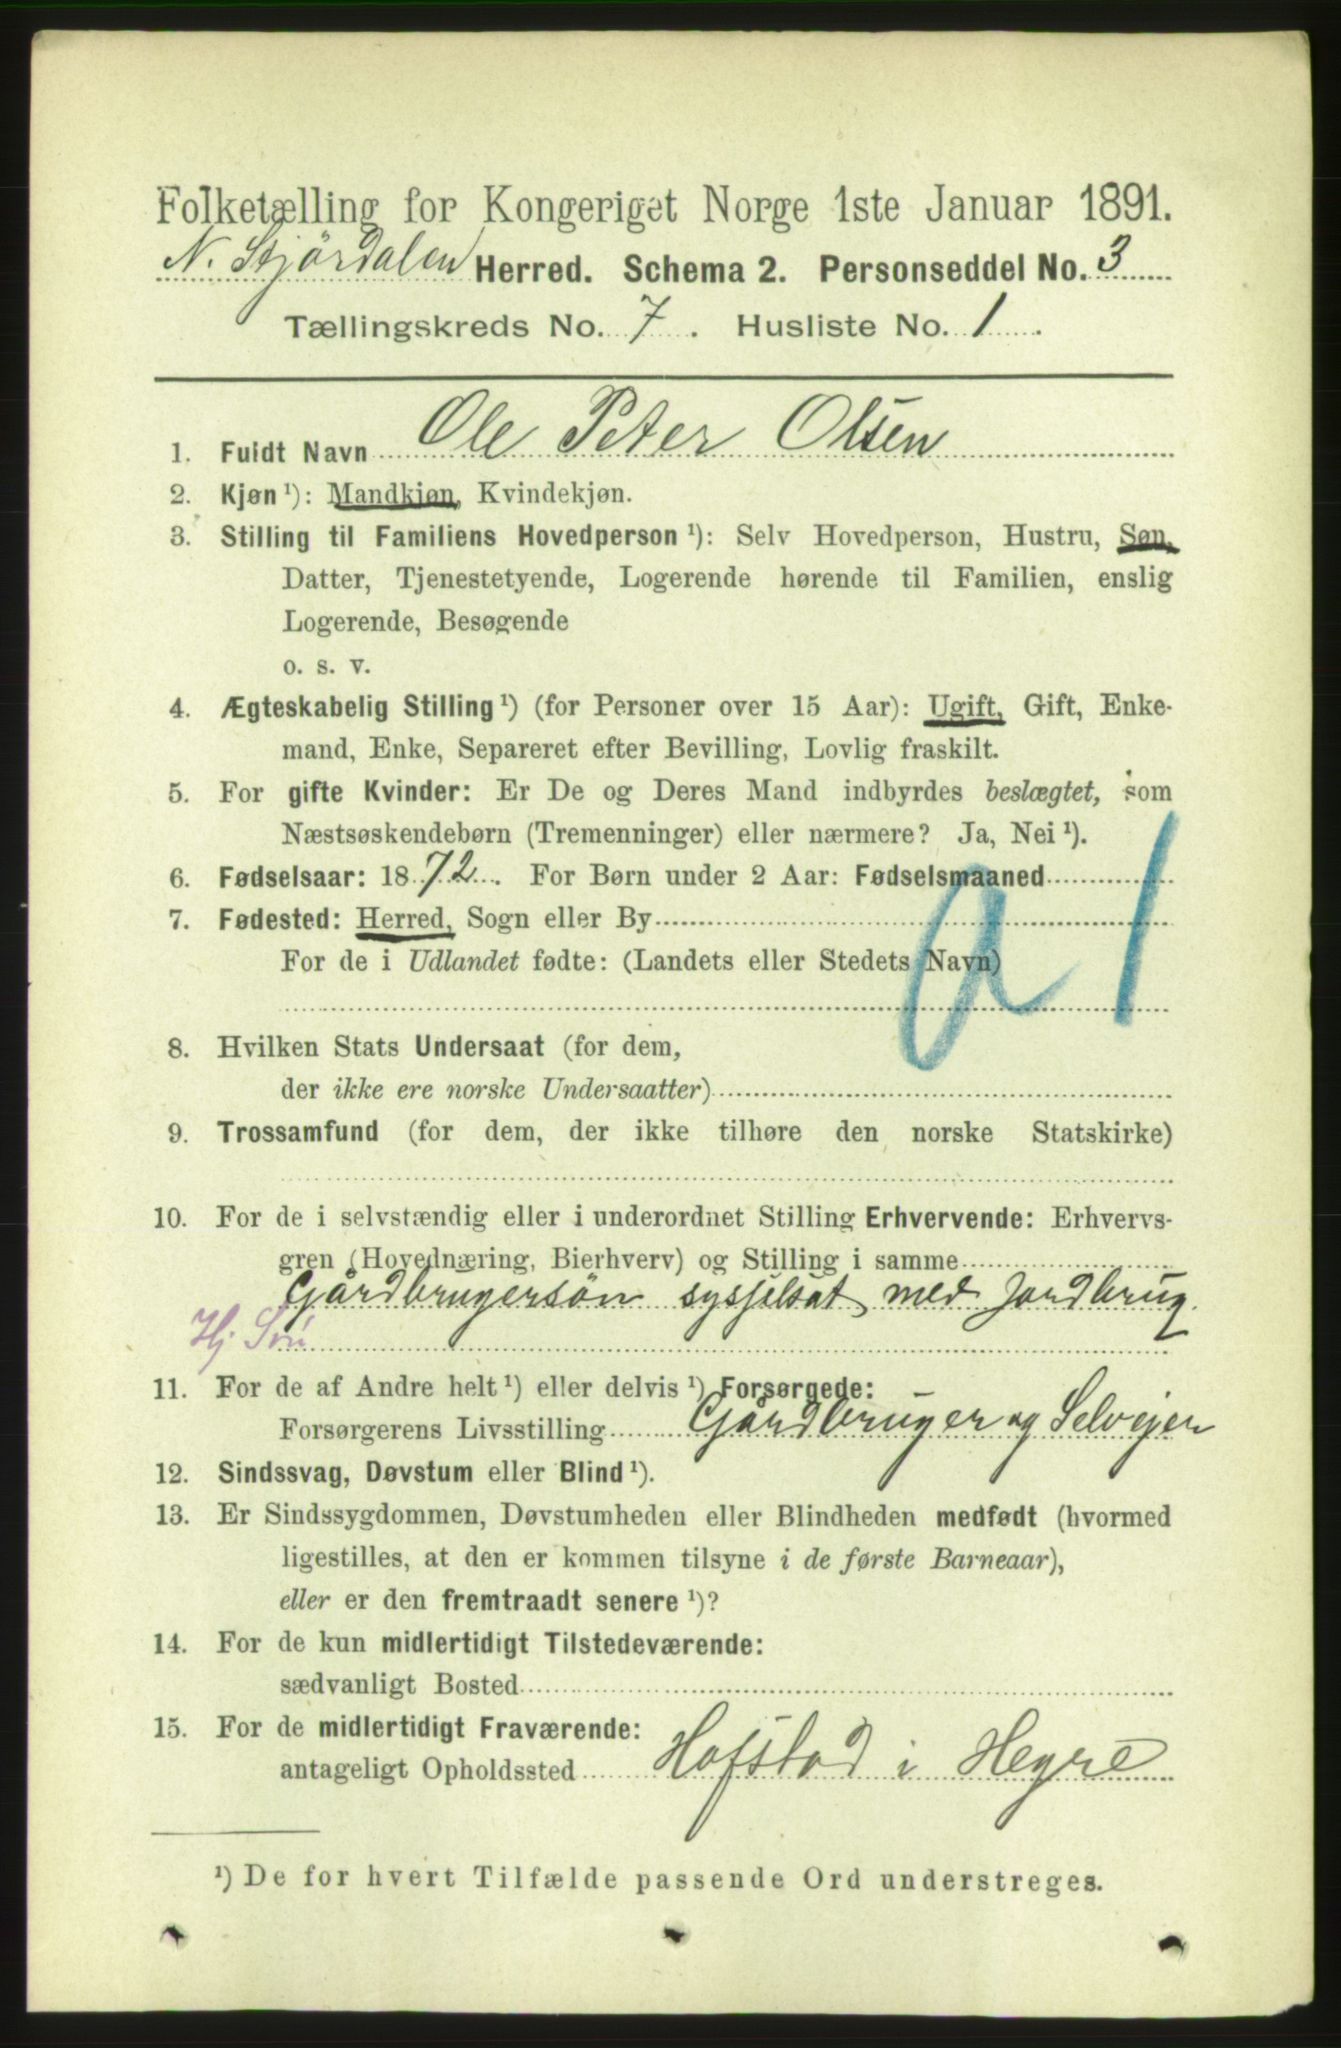 Folketælling for Kongeriget Norge 1ste Januar 1891.
N. Stjördalen Herred. Schema 2. Personseddel No. 3
Tællingskreds No. 7. Husliste No. 1.
1. Fuldt Navn Ole Peter Olsen
2. Kjøn ¹): Mandkjøn, Kvindekjøn.
3. Stilling til Familiens Hovedperson ¹): Selv Hovedperson, Hustru, Søn,
Datter, Tjenestetyende, Logerende hørende til Familien, enslig
Logerende, Besøgende
o. s. v.
4. Ægteskabelig Stilling ¹) (for Personer over 15 Aar): Ugift, Gift, Enke-
mand, Enke, Separeret efter Bevilling, Lovlig fraskilt.
5. For gifte Kvinder: Er De og Deres Mand indbyrdes beslægtet, som
Næstsøskendebørn (Tremenninger) eller nærmere? Ja, Nei ¹).
6. Fødselsaar: 1872. For Børn under 2 Aar: Fødselsmaaned
7. Fødested: Herred, Sogn eller By
a 1
For de i Udlandet fødte: (Landets eller Stedets Navn)
8. Hvilken Stats Undersaat (for dem,
der ikke ere norske Undersaatter)
9. Trossamfund (for dem, der ikke tilhøre den norske Statskirke)
10. For de i selvstændig eller i underordnet Stilling Erhvervende: Erhvervs-
gren (Hovednæring, Bierhverv) og Stilling i samme
Gårdbrugersön sysselsat med Jordbrug.
Hj. Søn
11. For de af Andre helt ¹) eller delvis ¹) Forsørgede:
Forsørgerens Livsstilling Gårdbruger og Selveier
12. Sindssvag, Døvstum eller Blind ¹).
13. Er Sindssygdommen, Døvstumheden eller Blindheden medfødt (hvormed
ligestilles, at den er kommen tilsyne i de første Barneaar),
eller er den fremtraadt senere ¹)?
14. For de kun midlertidigt Tilstedeværende:
sædvanligt Bosted
15. For de midlertidigt Fraværende:
antageligt Opholdssted Hofstad i Hegre
¹) De for hvert Tilfælde passende Ord understreges.